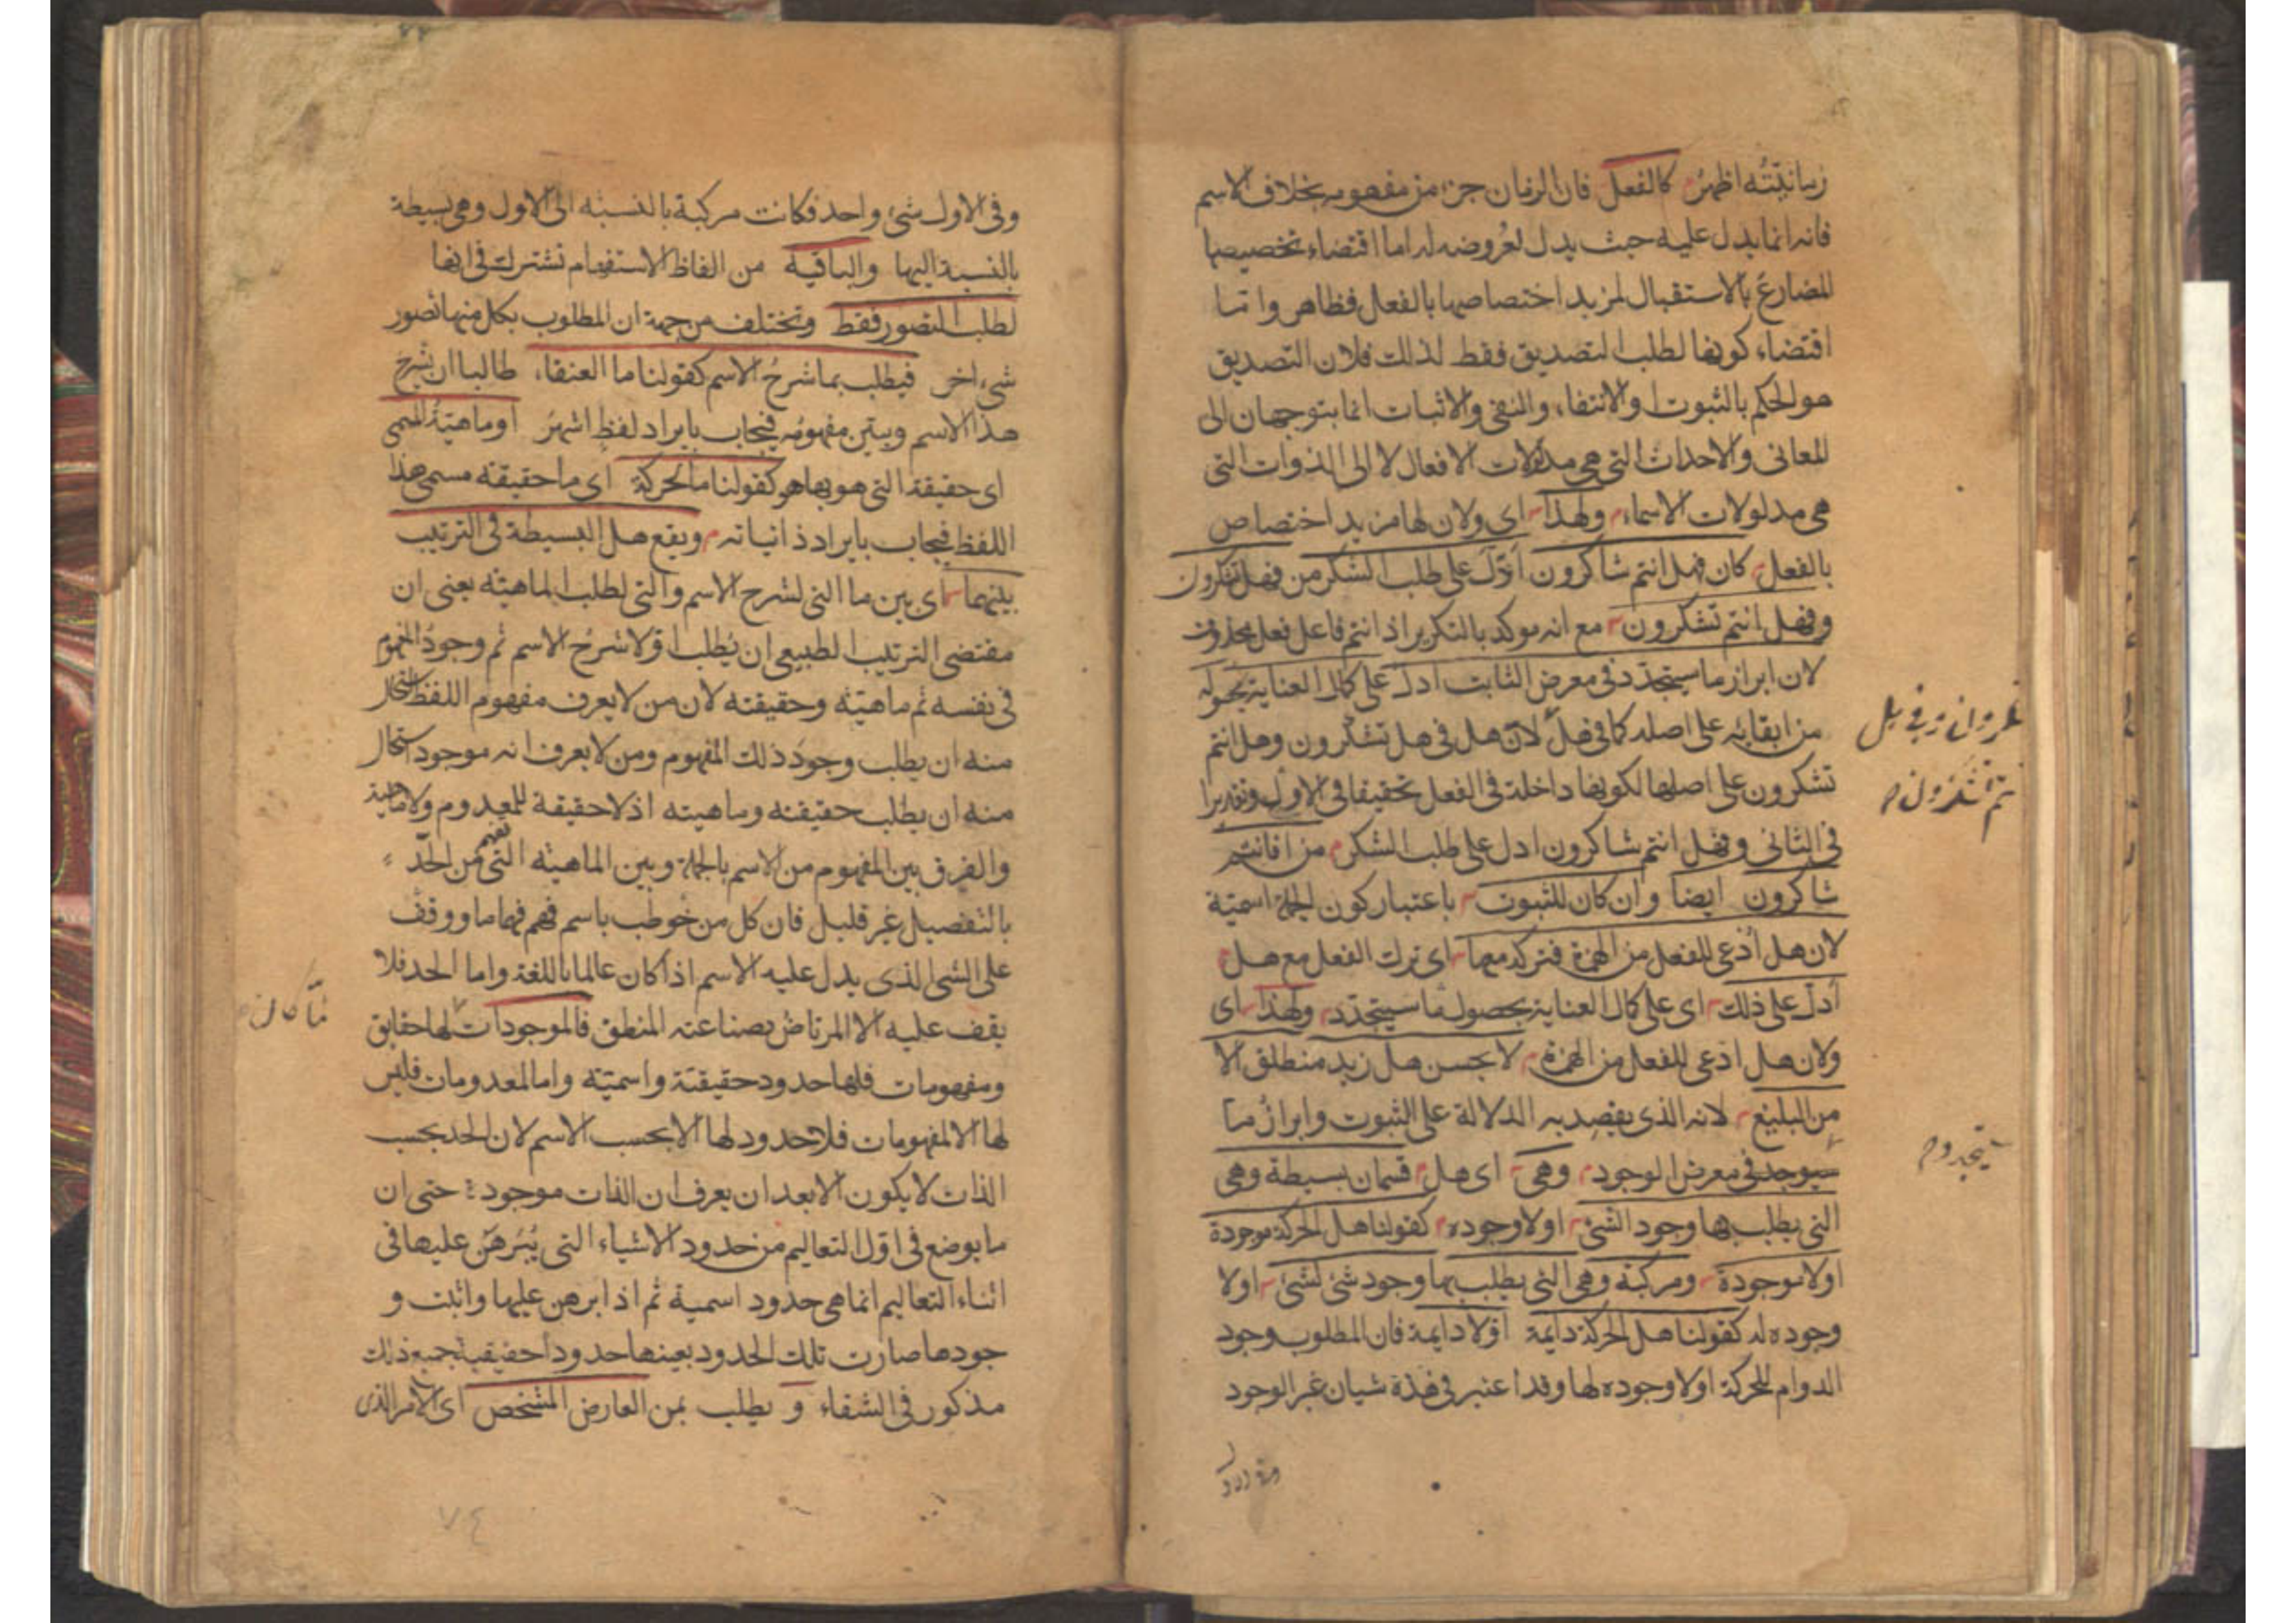 زمانيّتُه اظهرُ كالفعل فان الزمان جزء من مفهومه بخلاف الاسم
فانه انما يدل عليه حيث يدل بعُروضه له اما اقتضاء تخصيصها
المضارعَ بالاستقبال لمزيد اختصاصها بالفعل فظاهر واما
اقتضاء كونها لطلب التصديق فقط لذلك فلان التصديق
هو الحكم بالثبوت او الانتفاء والنفى والاثبات انما يتوجهان الى
المعانى والاحداث التى هى مدلولات الافعال لا الى الذوات التى
هى مدلولات الاسماء ولهذا اى ولان لها مزيد اختصاص
بالفعل كان فهل انتم شاكرون ادلّ على طلب الشكر من فهل تشكرون
وفهل انتم تشكرون مع انه موكد بالتكرير اذ انتم فاعل فعل محذوف
لان ابراز ما سيتجدد فى معرض الثابت ادل على كمال العناية بحصوله
من ابقائه على اصله كما فى هل لانّ هل فى هل تشكرون وهل انتم
تشكرون على اصلها لكونها داخلة فى الفعل تحقيقا فى الاول وتقديرا
فى الثانى وفهل انتم شاكرون ادل على طلب الشكر من افانتم
شاكرون ايضا وان كان للثبوت باعتبار كون الجملة اسميّة
لان هل اُدعى للفعل من الهمزة فتركه معها اى ترك الفعل مع هل
اُدلّ على ذلك اى على كمال العناية بحصول ما سيتجدّد ولهذا اى
ولان هل ادعى للفعل من الهمزة لا يحسن هل زيد منطلق الا
من البليغ لانه الذى يقصد به الدلالة على الثبوت وابرازُ ما
سيوجد فى معرض الوجود وهى اى هل قسمان بسيطة وهى
التى يطلب بها وجود الشئ اولا وجوده كقولنا هل الحركة موجودة
اولا موجودة ومركبة وهى التى يطلب بها وجود شئ لشئ اولا
وجوده له كقولنا هل الحركة دايمة اولا دايمة فان المطلوب وجود
الدوام للحركة اولا وجوده لها وقد اعتبر فى هذه شيان غير الوجود
وفى الاول شئ واحد فكانت مركبة بالنسبة الى الاول وهى بسيطة
بالنسبة اليها والباقية من الفاظ الاستفهام تشترك فى انها
لطلب التصور فقط وتختلف من جهة ان المطلوب بكل منها تصور
شئ اخر فيطلب بما شرحُ الاسم كقولنا ما العنقاء طالبا ان يشرح
هذا الاسم ويبيّن مفهومُه فيجاب بايراد لفظ اشهرَ او ماهيّةُ المسمى
اى حقيقة التى هو بها هو كقولنا ما الحركة اى ما حقيقة مسمى هذا
اللفظ فيجاب بايراد ذاتياته ويقع هل البسيطة فى الترتيب
بينهما اى بين ما التى لشرح الاسم والتى لطلب الماهيّة يعنى ان
مقتضى الترتيب الطبيعى ان يُطلب اوّلا شرحُ الاسم ثم وجودُ المفهوم
فى نفسه ثم ماهيّته وحقيقته لان من لا يعرف مفهوم اللفظ استحال
منه ان يطلب وجودَ ذلك المفهوم ومن لا يعرف انه موجود استحال
منه ان يطلب حقيقته وماهيته اذ لا حقيقة للمعدوم ولا ماهية
والفرق بين المفهوم من الاسم بالجملة وبين الماهيّة التى تفهم من الحدّ
بالتفصيل غير قليل فان كل من خُوطب باسم فهم فهما ما ووقف
على الشئ الذى يدل عليه الاسم اذا كان عالما باللغة واما الحد فلا
يقف عليه الا المرتاض بصناعة المنطق فالموجودات لها حقايق
ومفهومات فلها حدود حقيقيّة واسميّة واما المعدومات فليس
لها الا المفهومات فلا حدود لها الا بحسب الاسم لان الحد بحسب
الذات لا يكون الا بعد ان يعرف ان الذات موجودة حتى ان
ما يوضع فى اوّل التعاليم من حدود الاشياء التى يُبَرهَن عليها فى
اثناء التعاليم انما هى حدود اسمية ثم اذا برهن عليها واثبت و
جودها صارت تلك الحدود بعينها حدودا حقيقية جميع ذلك
مذكور فى الشفاء و يطلب بمن العارض المشخص اى الامر الذى
٧٤